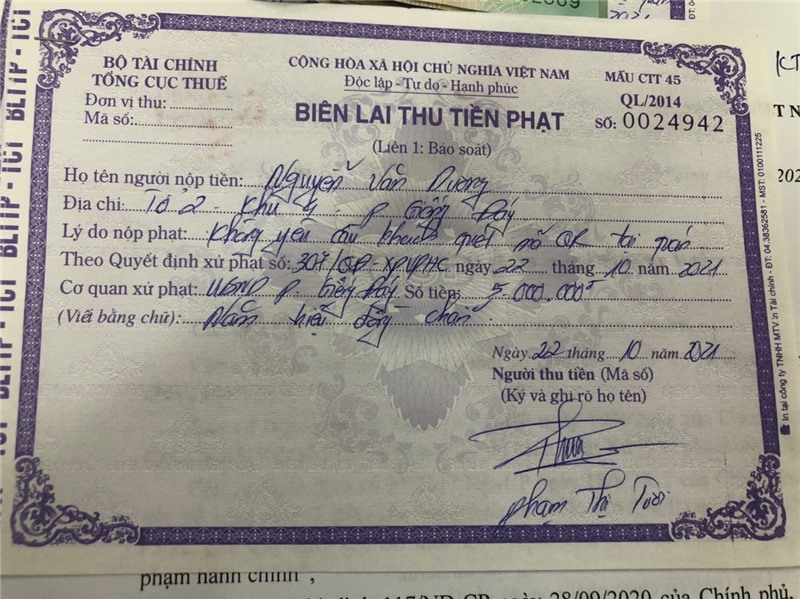 BỘ TÀI CHÍNH
TỔNG CỤC THUẾ
Đơn vị thu:
Mã số:
CỘNG HÒA XÃ HỘI CHỦ NGHĨA VIỆT NAM
Độc lập - Tự do - Hạnh phúc
BIÊN LAI THU TIỀN PHẠT
(Liên 1: Báo soát)
MẪU CTT 45
QL/2014
SỐ: 0024942
Họ tên người nộp tiền: Nguyễn Văn Dương
Địa chỉ: Tổ 2 - Khu 4 - P Giếng Đáy
Lý do nộp phạt: Không yêu cầu khách quét mã QR tại quán
Theo Quyết định xử phạt số: 307/QĐ XPVPHC ngày 22 tháng 10 năm 2021
Cơ quan xử phạt: UBND P. Giếng Đáy Số tiền: 5 000.000đ
(Viết bằng chữ): Năm triệu đồng chẵn
Ngày 22 tháng 10 năm 2021
Người thu tiền (Mã số)
(Ký và ghi rõ họ tên)
Phạm Thị Tươi
BLTTP - TCT
In tại công ty TNHH MTV In Tài chính - ĐT: 04.38362581 - MST: 0100111225
phạm hành chính",
117/NĐ-CP ngày 28/09/2020 của Chính phủ,